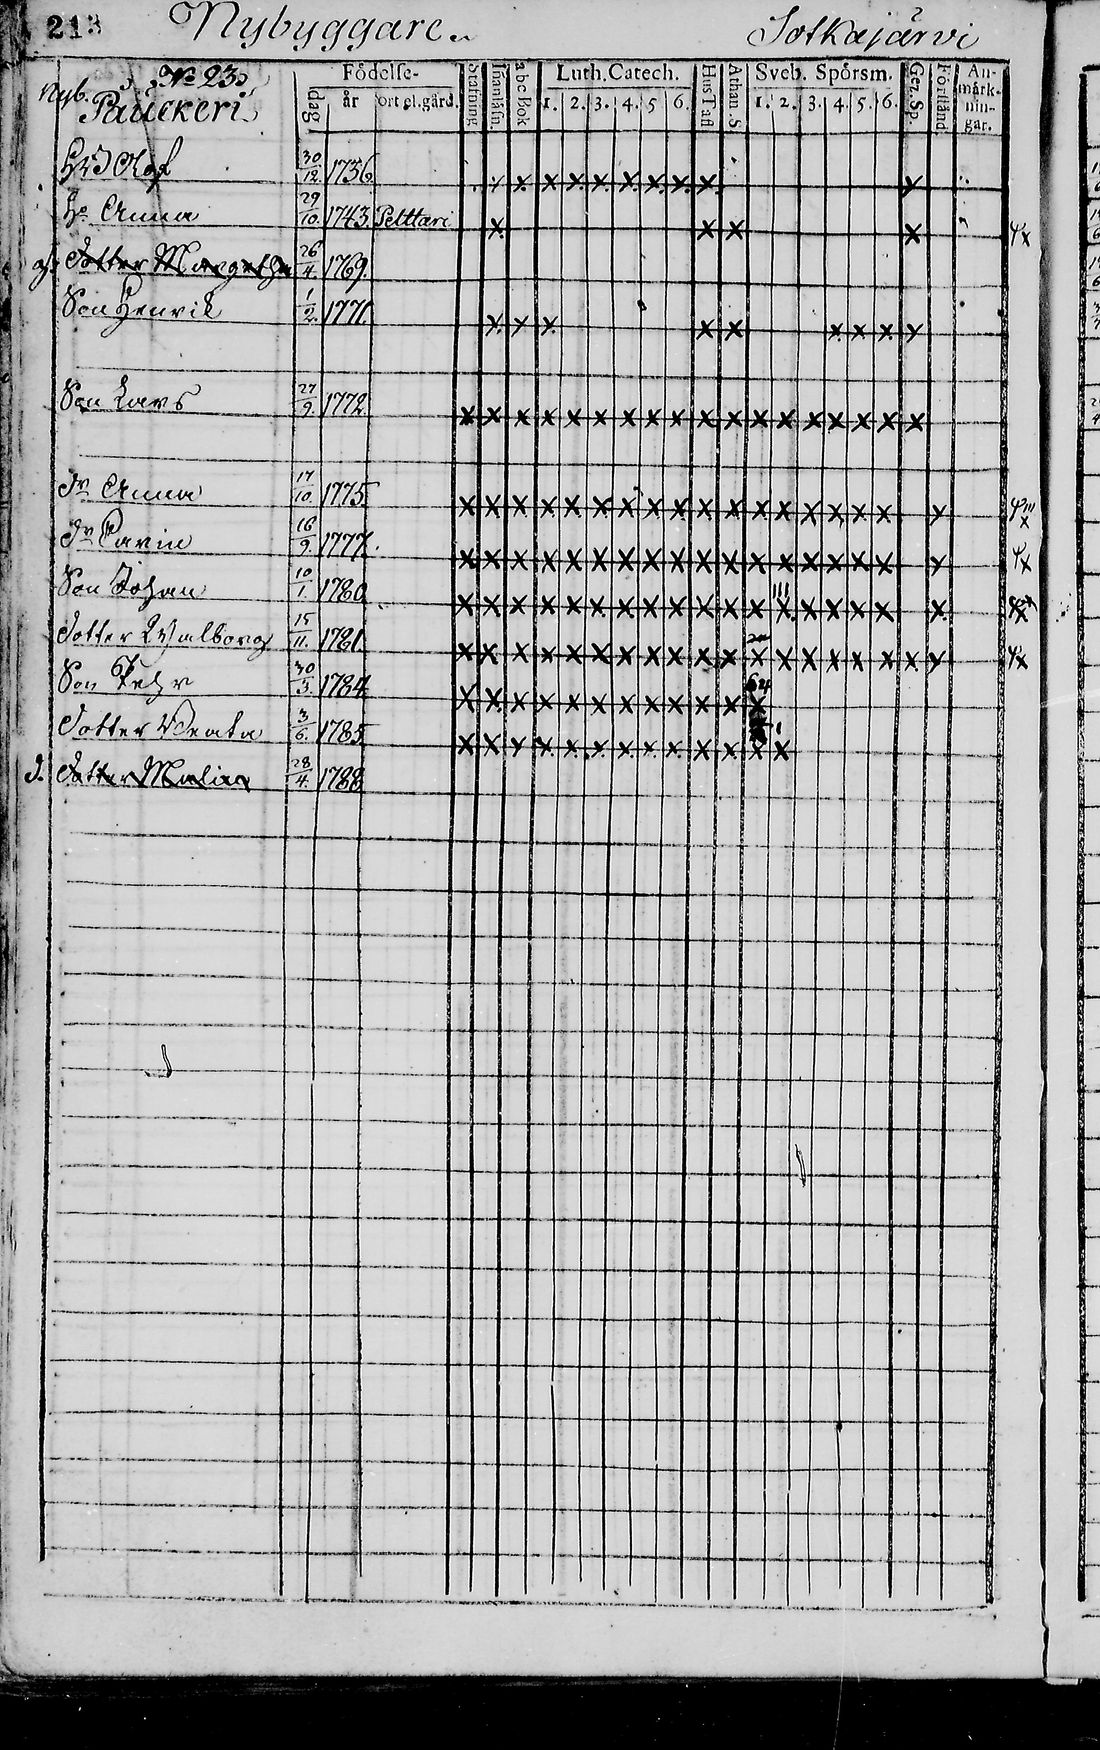 213 Nybyggare. Sotkajärvi
Nyb. № 23. Födelse- Stafning Innanläsn. abc Bok Luth. Catech. Hus Tafl Athan. S Sveb. Spörsm. Gez. Sp. Förstånd An-märk-nin-gar.
Pauckeri dag år ort el. gård. 1. 2. 3. 4. 5 6. 1. 2. 3. 4. 5. 6.
Olof 30/12. 1736
H. Anna 29/10. 1743. Pelttari
Dotter Margetha 26/4. 1769.
Son Henrik 1/2. 1771.
Son Lars 27/9. 1772
Dr Anna 17/10. 1775
Dr Carin 16/9. 1777.
Son Johan 10/1. 1780
Dotter Walborg 15/11. 1781.
Son Pehr 30/3. 1784
Dotter Beata 3/6. 1785
d. Dotter Malin 28/4. 1788